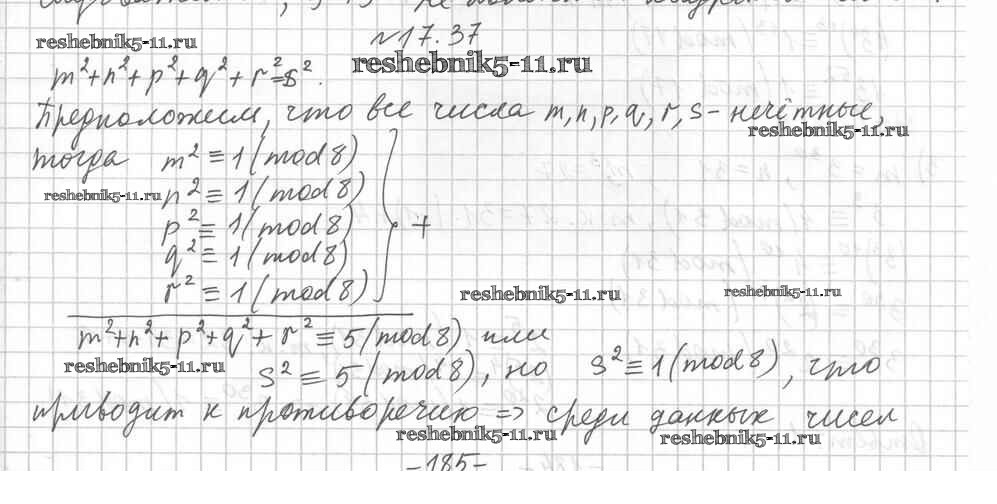 №17.37
reshebnik5-11.ru
reshebnik5-11.ru
m²+n²+p²+q²+r²=s².
Предположим, что все числа m,n,p,q,r,s - нечётные,
reshebnik5-11.ru
тогда m² ≡ 1(mod 8)
reshebnik5-11.ru n² ≡ 1(mod 8)
p² ≡ 1(mod 8) +
q² ≡ 1(mod 8)
r² ≡ 1(mod 8)
reshebnik5-11.ru reshebnik5-11.ru
m²+n²+p²+q²+r² ≡ 5(mod 8) или
reshebnik5-11.ru
s² ≡ 5(mod 8), но s² ≡ 1(mod 8), что
приводит к противоречию => среди данных чисел
reshebnik5-11.ru reshebnik5-11.ru
-185-